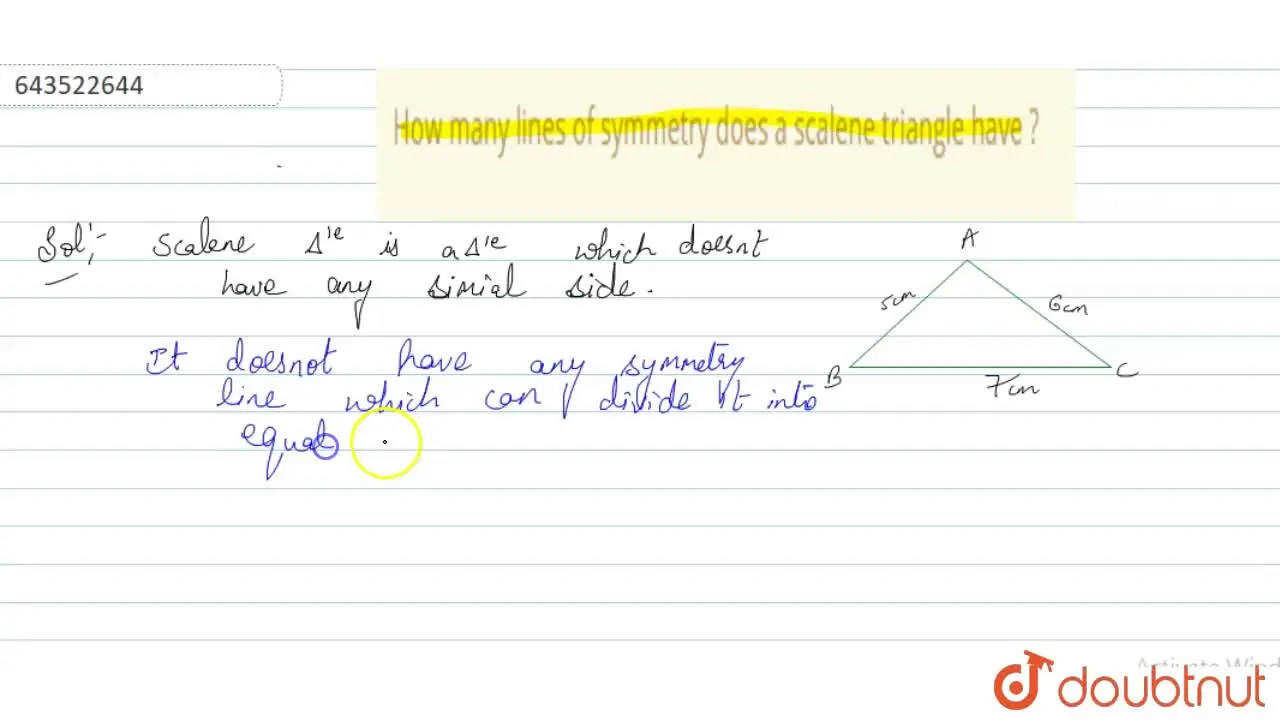 643522644
How many lines of symmetry does a scalene triangle have ?
Sol:- Scalene Δ'le is a Δ'le which doesnt
have any simial side.
It doesnot have any symmetry
line which can divide it into
equal
A
5cm
6cm
B
7cm
C
doubtnut